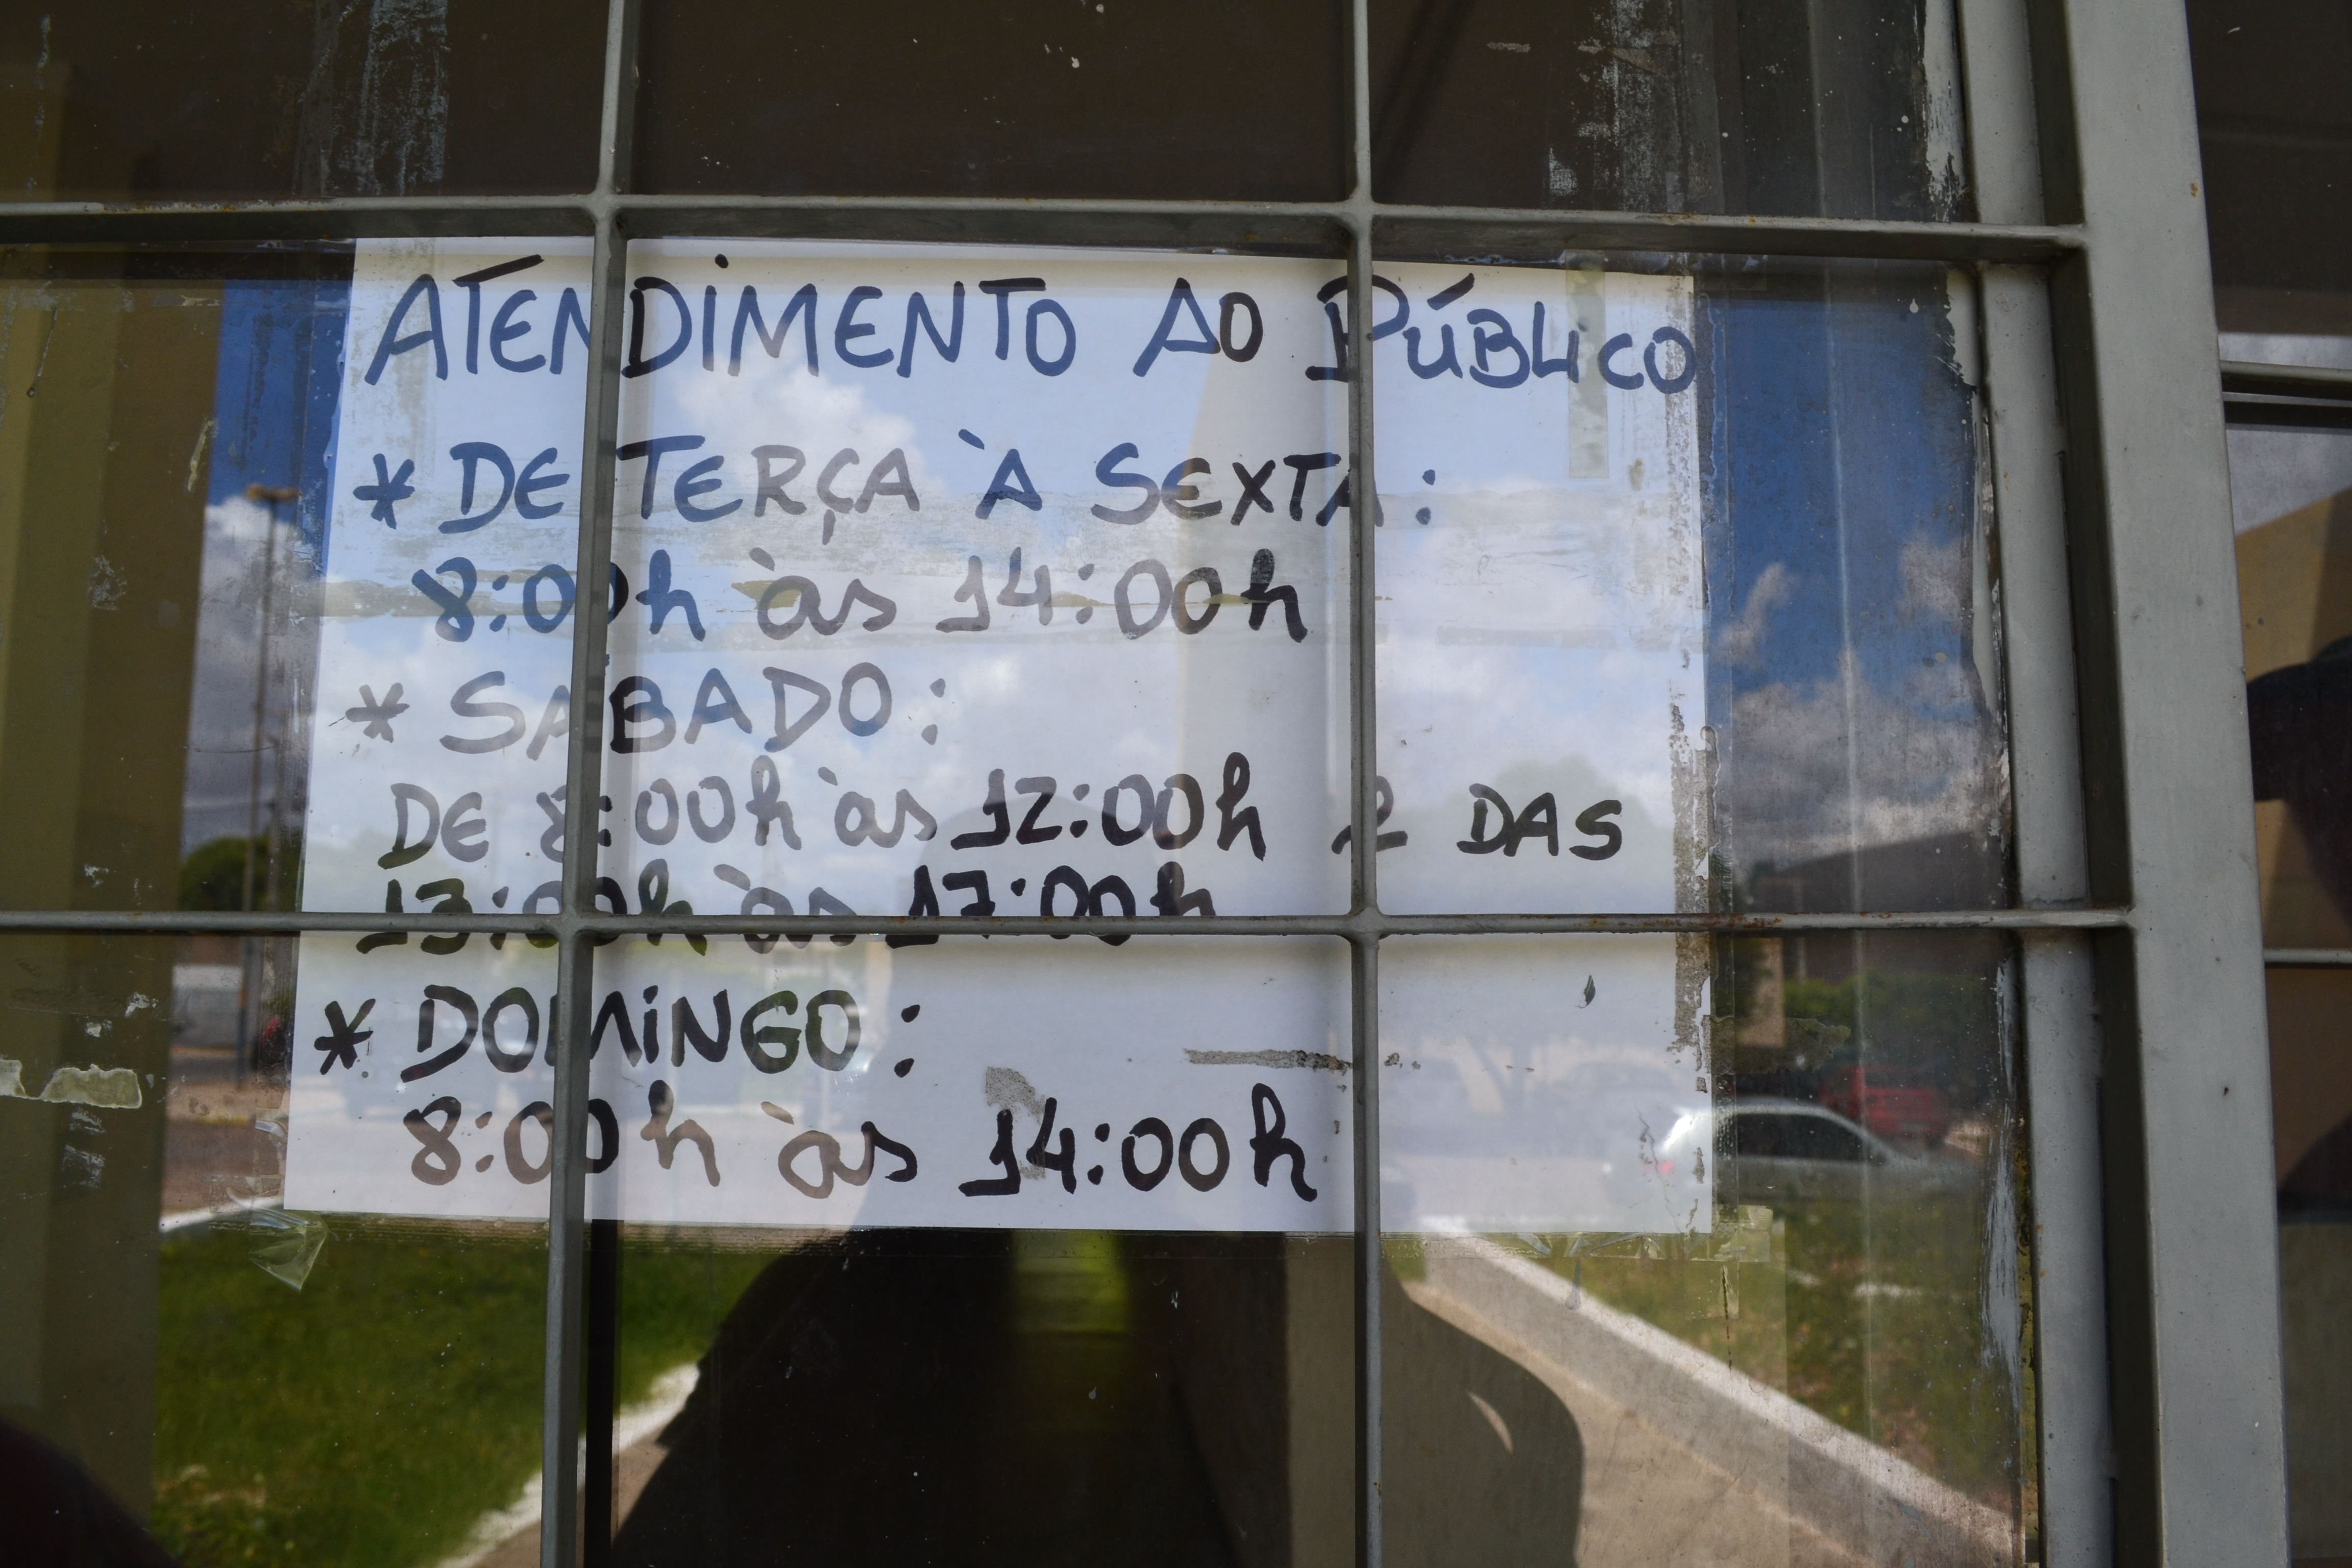 ATENDIMENTO AO PÚBLICO
* DE TERÇA À SEXTA:
8:00h às 14:00h
* SÁBADO:
DE 8:00h às 12:00h e DAS
13:00h às 17:00h
* DOMINGO:
8:00h às 14:00h